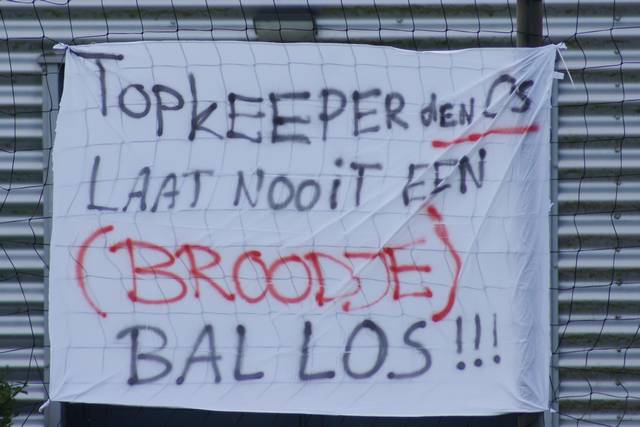 TOPKEEPER dEN OS
LAAT NOOiT EEN
(BROODJE)
BAL LOS!!!